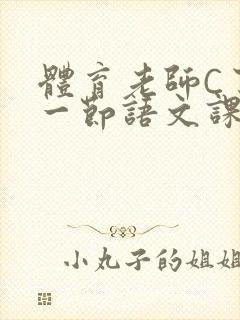 體育老師C
一節語文課
小丸子的姐姐